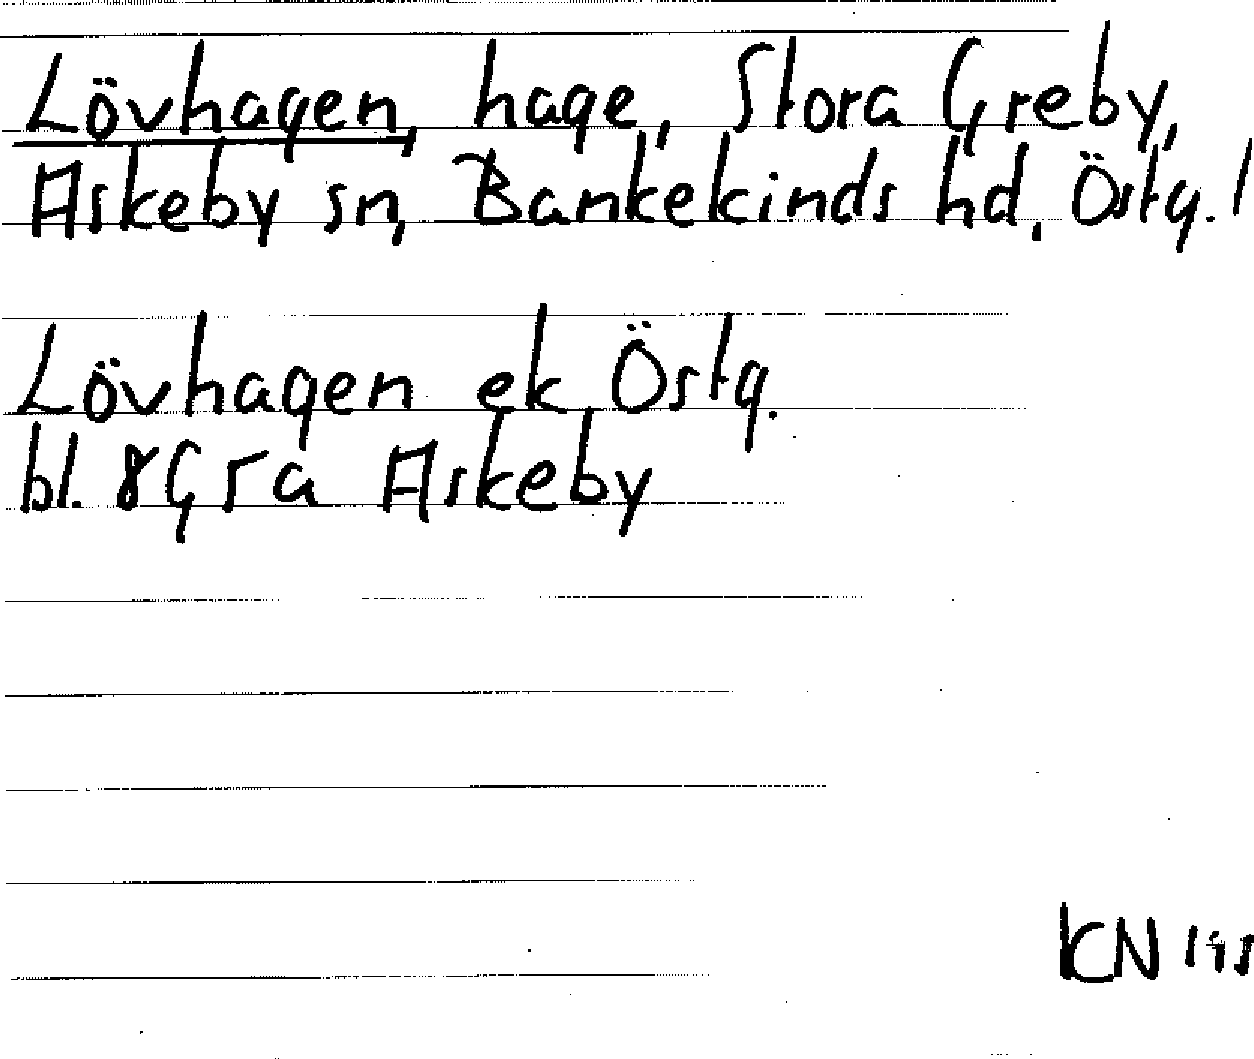 Lövhagen, hage, Stora Greby,
Askeby sn, Bankekinds hd, Östg. l
Lövhagen ek Östg.
bl. 8G5a Askeby
KN